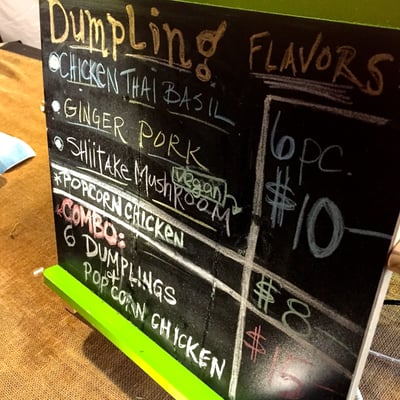 Dumpling FLAVORS
CHICKEN THAI BASIL
GINGER PORK
SHIITAKE MUSHROOM
vegan
6 pc.
$10
*POPCORN CHICKEN
$8
*COMBO:
6 DUMPLINGS
+ POPCORN CHICKEN
$15